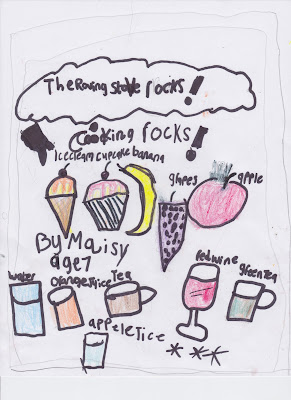 The Roving Stove rocks!
Cooking rocks!
Icecream cupcake banana
grapes apple
By Maisy
age 7
water orangejice Tea redwine greentea
appelejice